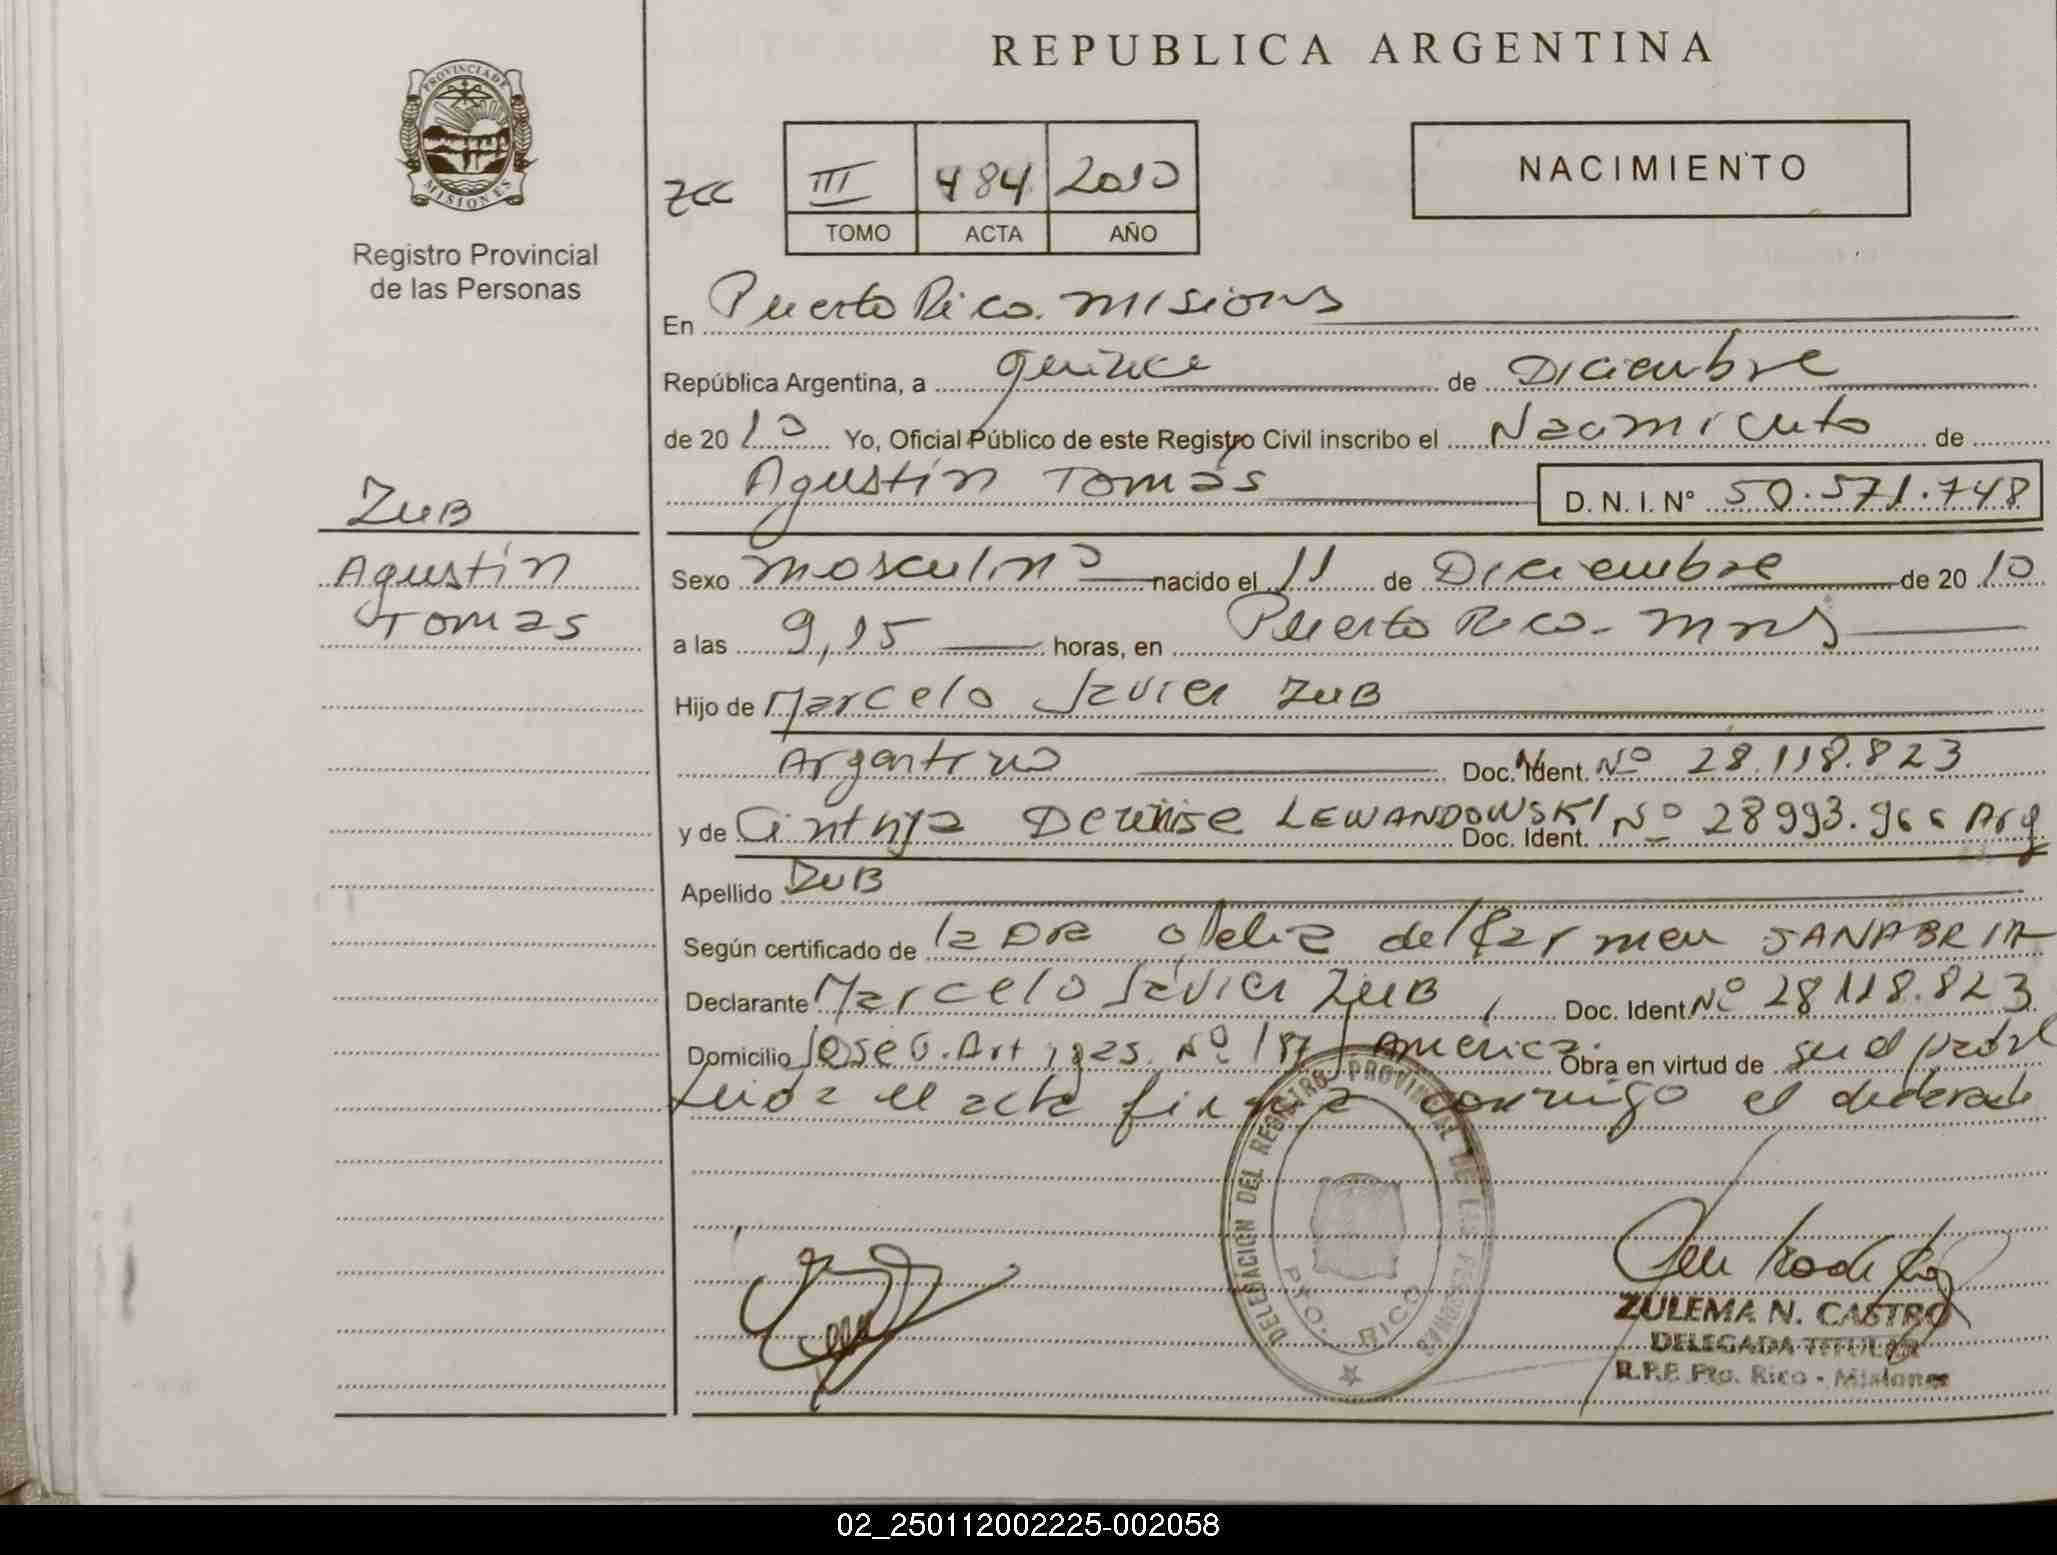 REPUBLICA ARGENTINA
PROVINCIA DE
MISIONES
Registro Provincial
de las Personas
zcc
III 484 2010
TOMO ACTA AÑO
NACIMIENTO
En Puerto Rico. Misiones
República Argentina, a quince de Diciembre
de 2010 Yo, Oficial Público de este Registro Civil inscribo el Nacimiento de
Agustín Tomás D. N. I. N° 50.571.748
ZUB
Agustín
Tomas
Sexo masculino nacido el 11 de Diciembre de 2010
a las 9,15 horas, en Puerto Rico - Mnes
Hijo de Marcelo Javier ZUB
Argentino Doc. Ident. Nº 28.118.823
y de Cinthya Denise LEWANDOWSKI Doc. Ident. Nº 28993.966 Arg
Apellido ZUB
Según certificado de la Dra Ofelia del Carmen SANABRIA
Declarante Marcelo Javier ZUB, Doc. Ident Nº 28118.823
Domicilio José G. Artigas Nº America. Obra en virtud de
Leida el acta firma conmigo el declarante
DELEGACION DEL REGISTRO PROVINCIAL DE LAS PERSONAS
PTO. RICO
ZULEMA N. CASTRO
DELEGADA TITULAR
R.P.P. Pto. Rico - Misiones
02_250112002225-002058